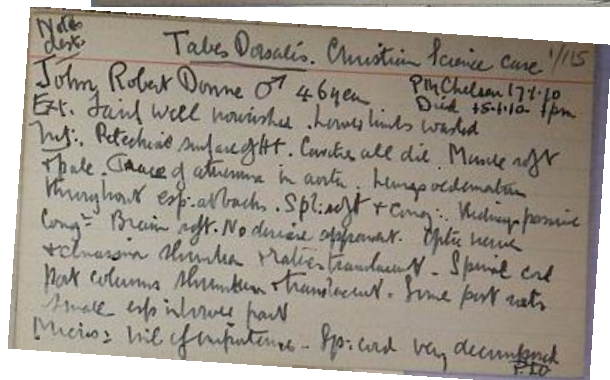 Notes
dest.
Tabes Dorsalis. Christian Science case 1/115
John Robert Donne ♂ 46 year PM Chelsea 17.1.10
Died 15.1.10 1pm
Ext. Fairly well nourished. Lower limbs wasted
Int:. Petechiae surface of Ht. Cavities all dil. Muscle soft
+ pale. Trace of atheroma in aorta. Lungs oedematous
throughout esp: at backs. Spl: soft + cong:. Kidneys passive
cong= Brain soft. No disease apparent. Optic nerve
+ chiasma shrunken + rather translucent - Spinal cord
Post columns shrunken + translucent. Some post roots
small esp in lower part
Micros= Nil of importance - Sp: cord very decomposed
P.T.O